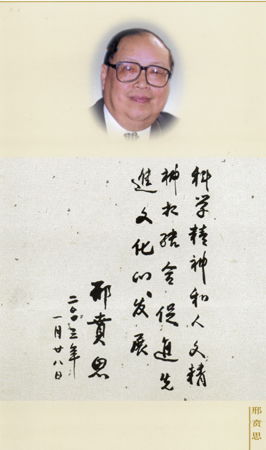 科学精神和人文精
神相结合促进先
进文化的发展
邢贲思
二〇〇三年
一月廿八日
邢贲思